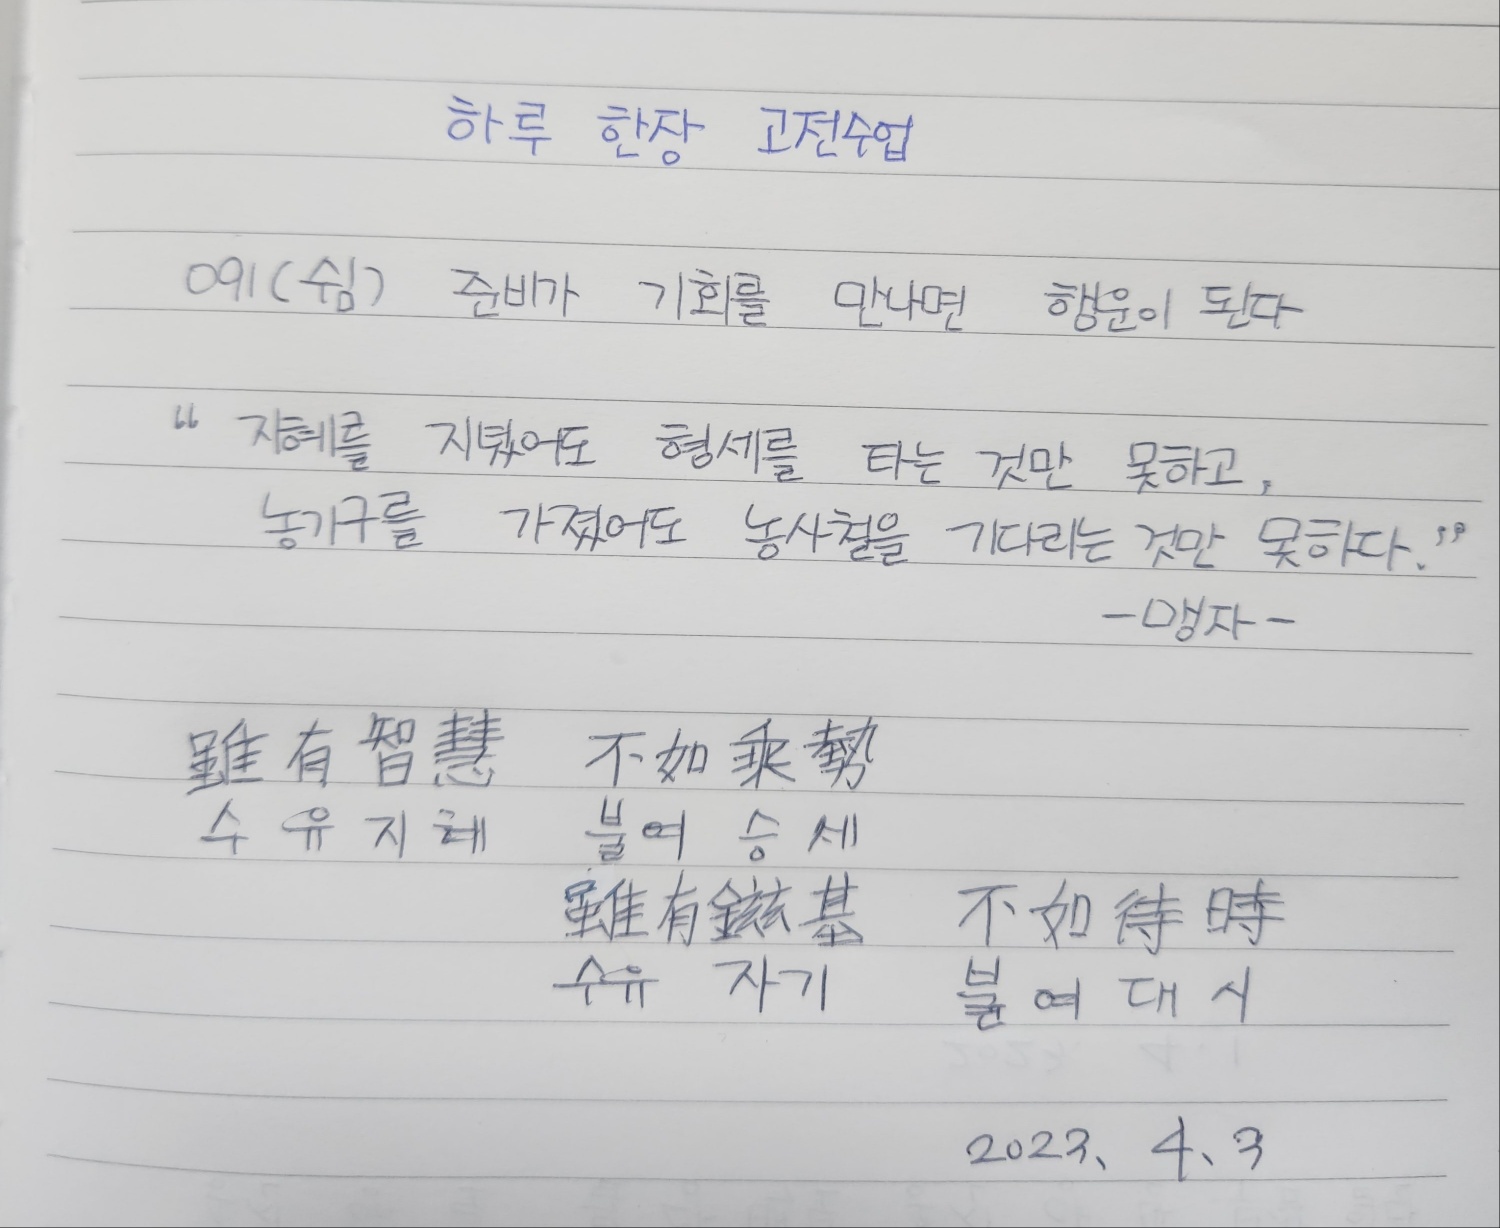 하루 한장 고전수업
091(쉼) 준비가 기회를 만나면 행운이 된다
“지혜를 지녔어도 형세를 타는 것만 못하고,
농기구를 가졌어도 농사철을 기다리는 것만 못하다.”
-맹자-
雖有智慧 不如乘勢
수유지혜 불여승세
雖有鎡基 不如待時
수유 자기 불여대시
2023. 4. 3